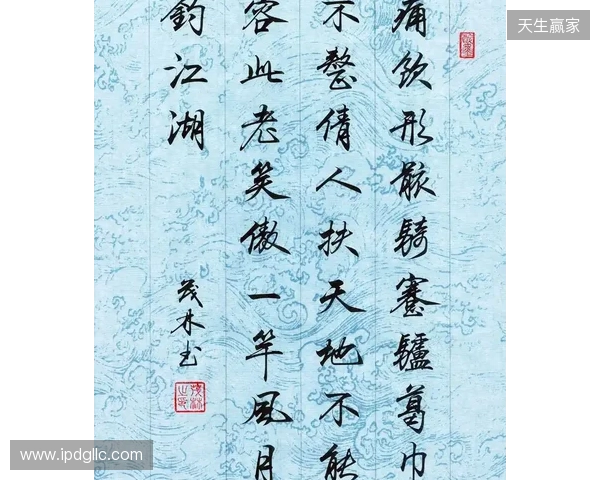 天生赢家
痛飲形骸騎蹇驢葛巾
不整倩人扶天地不能
容此老笑傲一竿風月
釣江湖
茂林书
www.ipdgllc.com